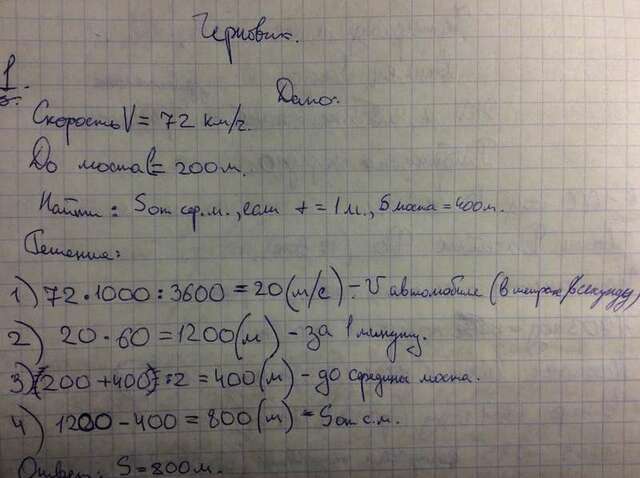 Черновик.
1
Дано:
Скорость V = 72 км/ч.
До моста l = 200 м.
Найти: S от сер. м., если t = 1 м., S моста = 400 м.
Решение:
1) 72 · 1000 : 3600 = 20 (м/с) - V автомобиля (в метрах/секунду)
2) 20 · 60 = 1200 (м) - за 1 минуту.
3) (200 + 400) : 2 = 400 (м) - до середины моста.
4) 1200 - 400 = 800 (м) - S от с.м.
Ответ: S = 800 м.